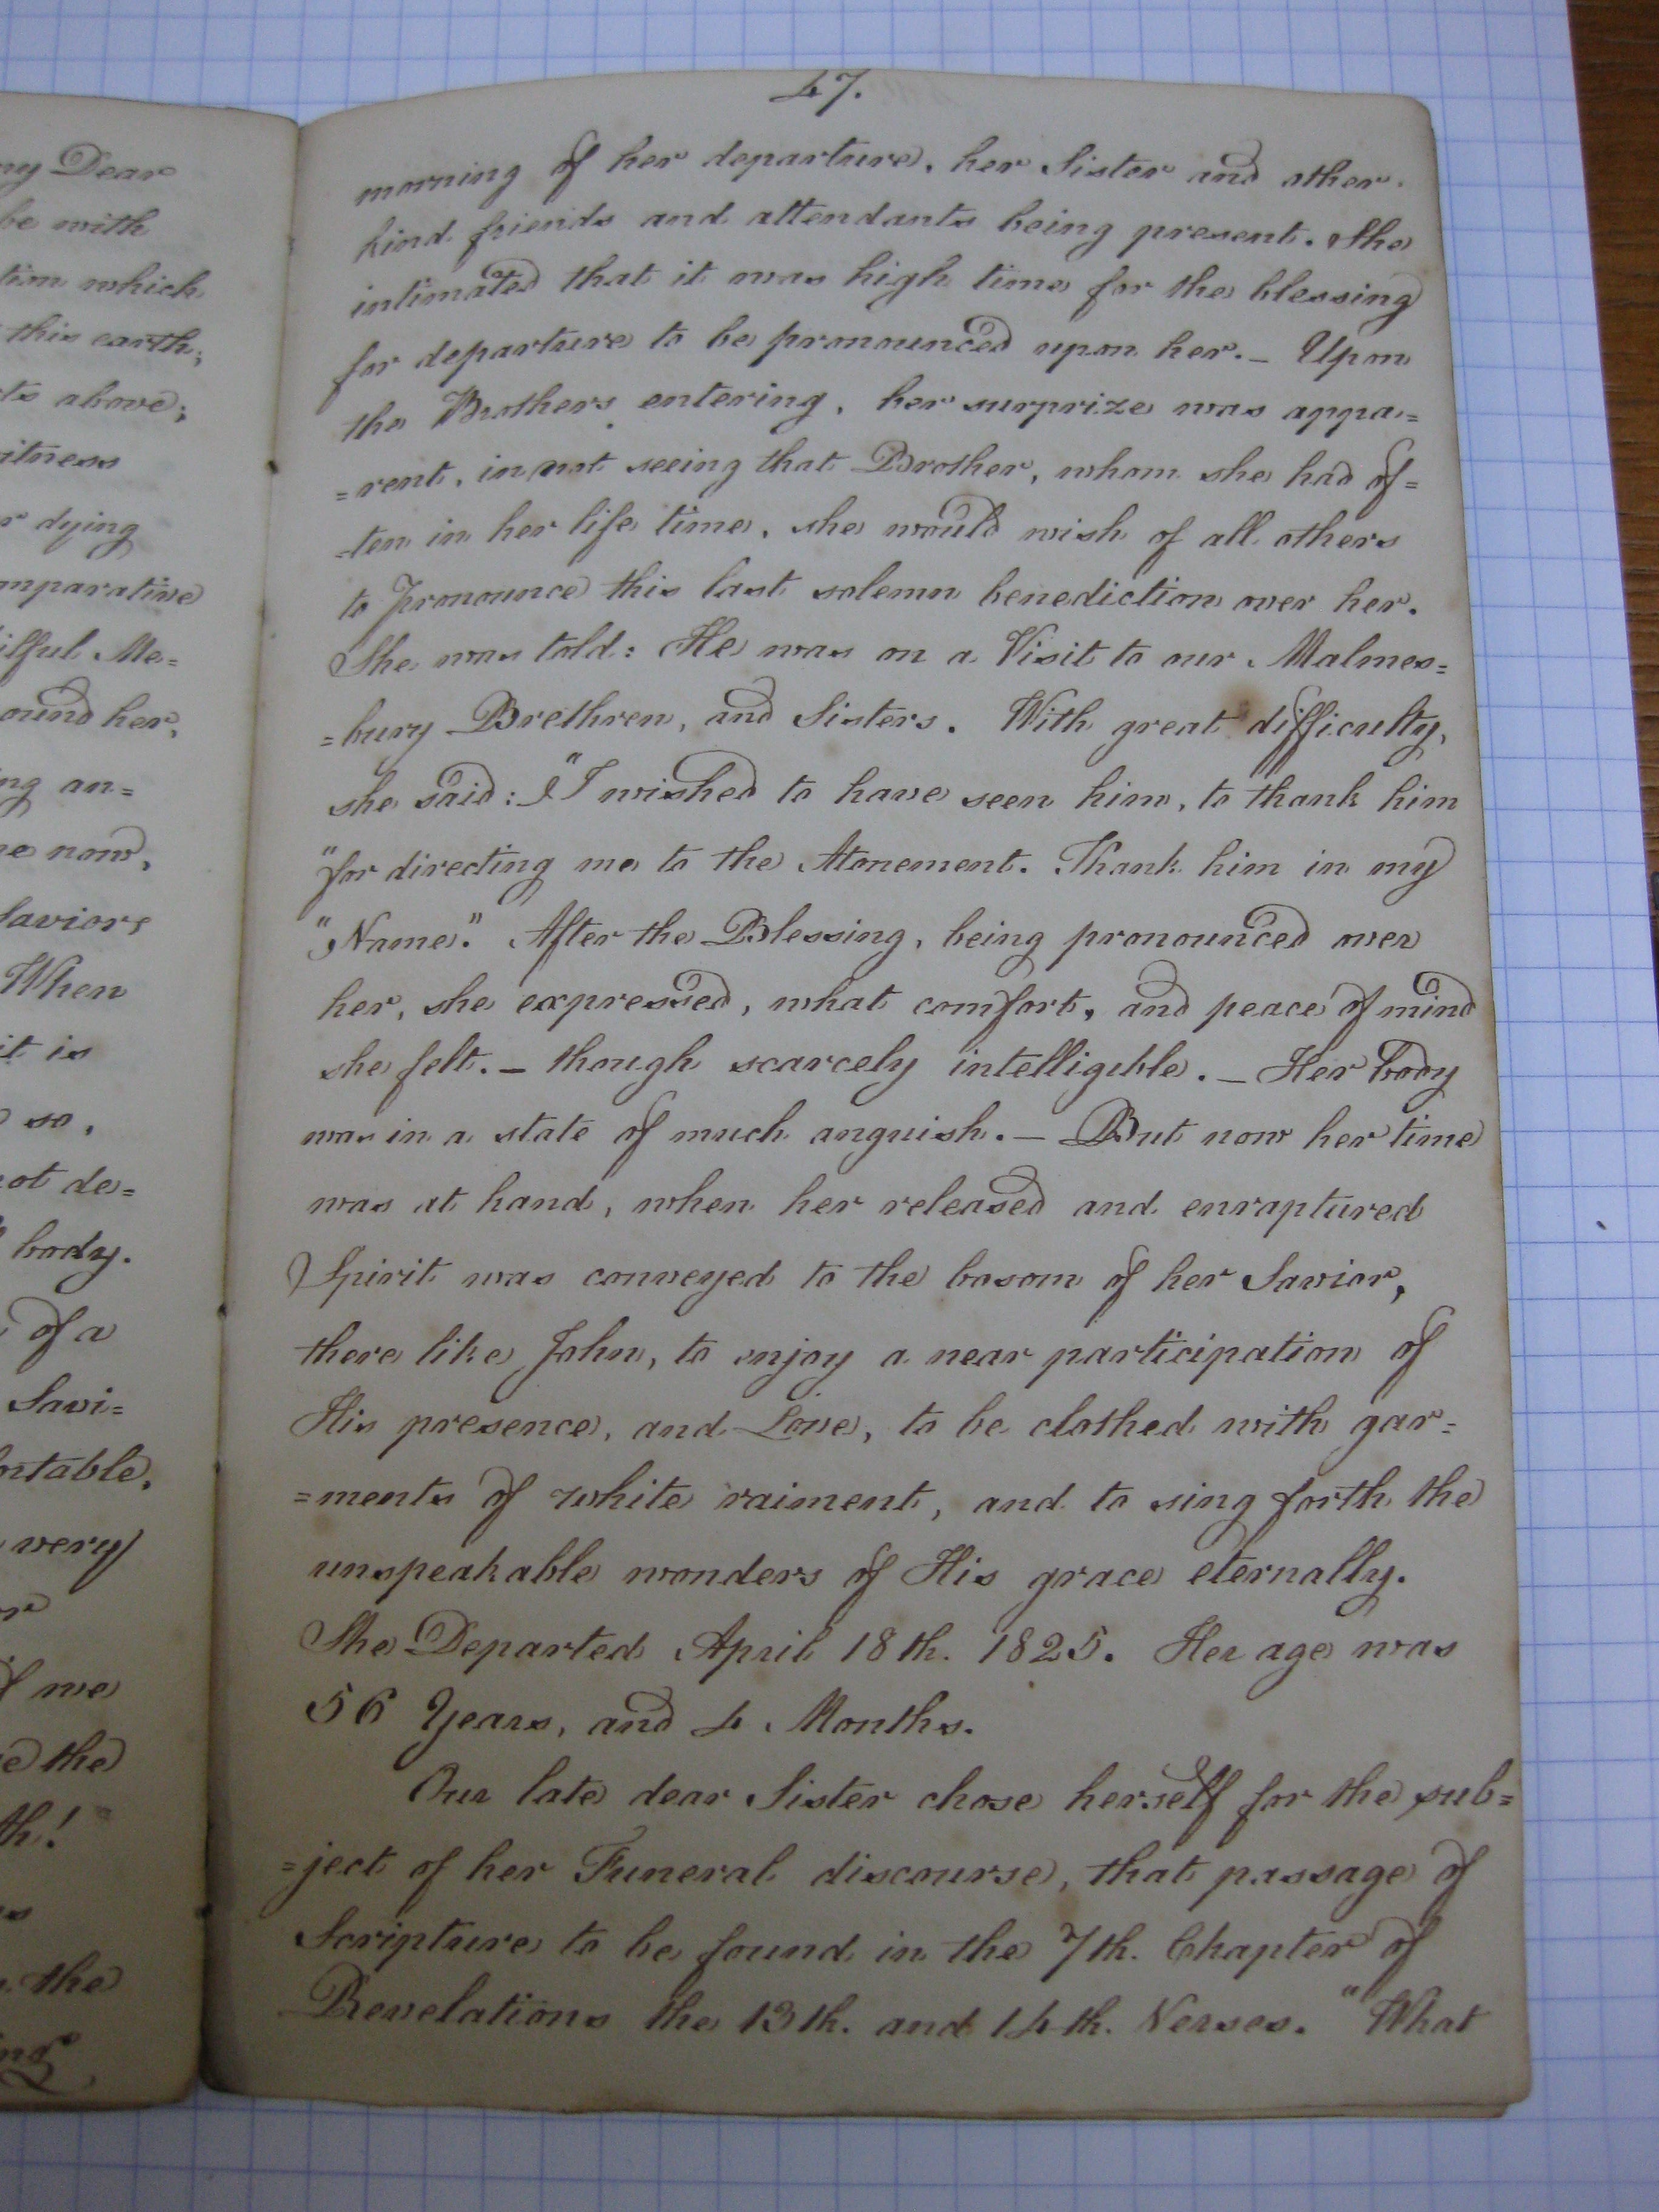 my Dear
be with
tion which
this earth;
ts above;
itness
r dying
mparative
ilful Me=
ound her,
ng an=
ne now,
Saviors
When
it is
so,
not de=
body.
of a
Savi=
ortable,
very
or
me
the
th!
the
47.
morning of her departure, her Sister and other
kind friends and attendants being present. She
intimated that it was high time for the blessing
for departure to be pronounced upon her. _ Upon
the Brothers entering, her surprize was appa=
=rent, in not seeing that Brother, whom she had of=
=ten in her life time, she would wish of all others
to pronounce this last solemn benediction over her.
She was told: He was on a Visit to our Malmes=
=bury Brethren, and Sisters. With great difficulty,
she said: "I wished to have seen him, to thank him
"for directing me to the Atonement. Thank him in my
"Name." After the Blessing, being pronounced over
her, she expressed, what comfort, and peace of mind
she felt. _ though scarcely intelligible. _ Her body
was in a state of much anguish. _ But now her time
was at hand, when her released and enraptured
Spirit was conveyed to the bosom of her Savior,
there like John, to enjoy a near participation of
His presence, and Love, to be clothed with gar=
=ments of white raiment, and to sing forth the
unspeakable wonders of His grace eternally.
She Departed April 18th. 1825. Her age was
56 Years, and 4 Months.
Our late dear Sister chose herself for the sub=
=ject of her Funeral discourse, that passage of
Scripture to be found in the 7th. Chapter of
Revelations the 13th. and 14th. Verses. "What